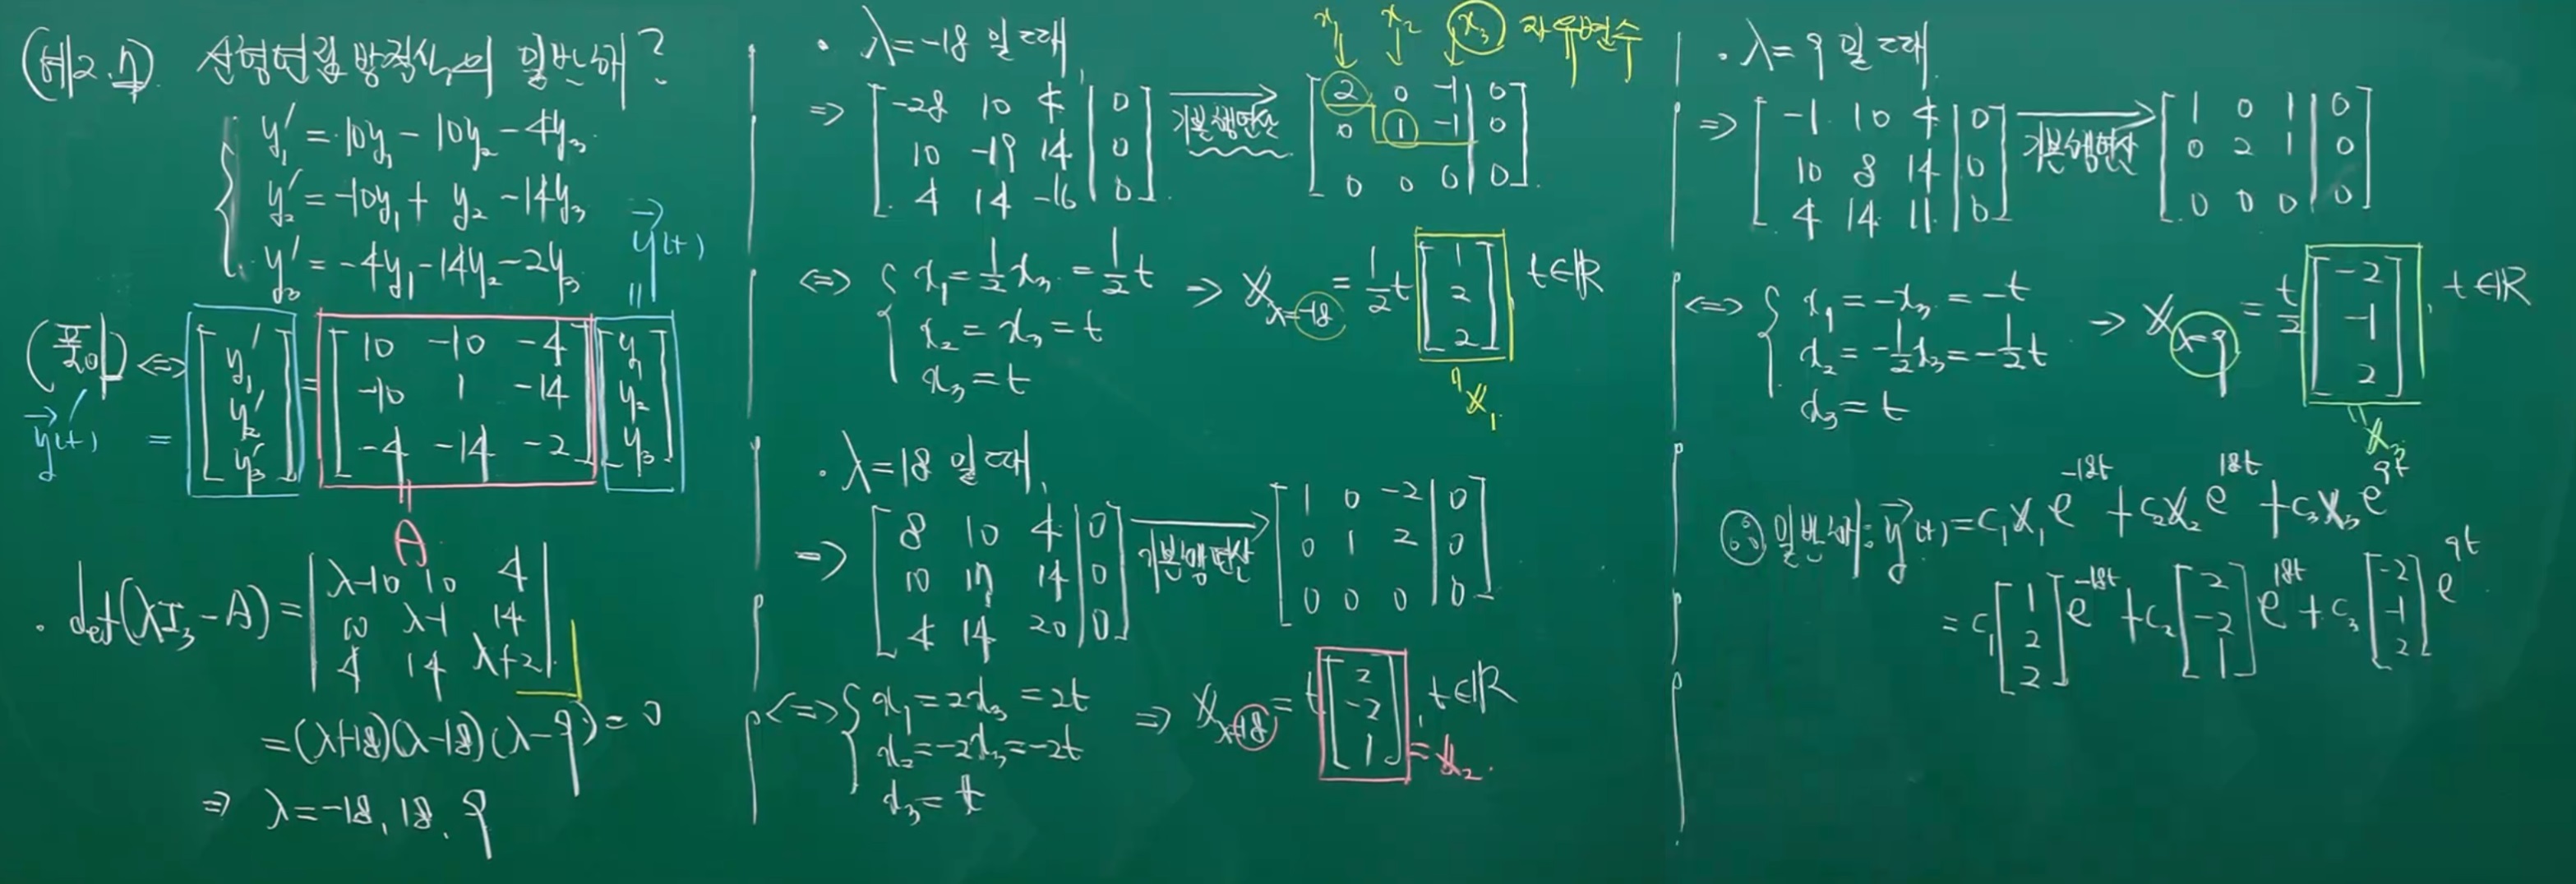 (예2.7) 선형연립방정식의 일반해?
y₁′ = 10y₁ − 10y₂ − 4y₃
y₂′ = −10y₁ + y₂ − 14y₃
y₃′ = −4y₁ − 14y₂ − 2y₃
y⃗(t)
=
(풀이) ⇔ [y₁′ y₂′ y₃′] = [10 −10 −4; −10 1 −14; −4 −14 −2] [y₁ y₂ y₃]
y⃗′(t) =
A
· det(λI₃ − A) = |λ−10 10 4; 10 λ−1 14; 4 14 λ+2|
= (λ+18)(λ−18)(λ−9) = 0
⇒ λ = −18, 18, 9
· λ = −18 일 때,
x₁ x₂ x₃ 자유변수
⇒ [−28 10 4 | 0; 10 −19 14 | 0; 4 14 −16 | 0] 기본행연산 → [2 0 −1 | 0; 0 1 −1 | 0; 0 0 0 | 0]
⇔ { x₁ = ½x₃ = ½t
x₂ = x₃ = t
x₃ = t
⇒ X_λ=−18 = ½t [1 2 2] t∈ℝ
" X₁
· λ = 18 일 때,
⇒ [8 10 4 | 0; 10 17 14 | 0; 4 14 20 | 0] 기본행연산 → [1 0 −2 | 0; 0 1 2 | 0; 0 0 0 | 0]
⇔ { x₁ = 2x₃ = 2t
x₂ = −2x₃ = −2t
x₃ = t
⇒ X_λ=18 = t [2 −2 1], t∈ℝ
= X₂.
· λ = 9 일 때,
⇒ [−1 10 4 | 0; 10 8 14 | 0; 4 14 11 | 0] 기본행연산 → [1 0 1 | 0; 0 2 1 | 0; 0 0 0 | 0]
⇔ { x₁ = −x₃ = −t
x₂ = −½x₃ = −½t
x₃ = t
⇒ X_λ=9 = t/2 [−2 −1 2], t∈ℝ
" X₃
∴ 일반해: y⃗(t) = c₁X₁e^−18t + c₂X₂e^18t + c₃X₃e^9t
= c₁[1 2 2]e^−18t + c₂[2 −2 1]e^18t + c₃[−2 −1 2]e^9t